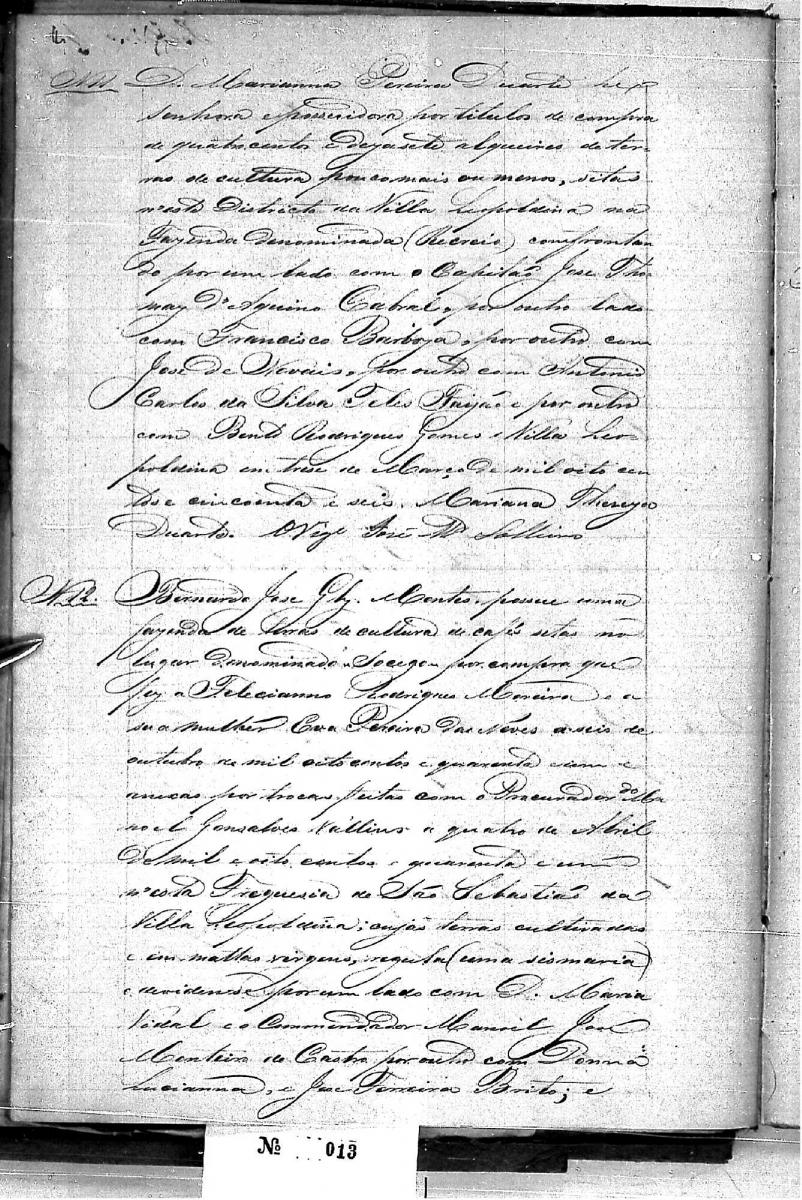 N 11. D. Marianna Pereira Duarte he
senhora e possuidora por titulos de compra
de quatrocentos e dezasete alqueires de ter-
ras de cultura pouco mais ou menos, sitas
n'este Districto da Villa Leopoldina na
Fazenda denominada (Recreio) confrontan
do por um lado com o Capitaõ Jose Tho-
maz d'Aquino Cabral, por outro lado
com Francisco Barboza, por outro com
Jose de Novais, por outro com Antonio
Carlos da Silva Teles Faijaõ e por outro
com Bento Rodrigues Gomes. Villa Leo-
poldina em trese de Março de mil oito cen
tos e cincoenta e seis. Mariana Thereza
Duarte. O Vigº José Mª Solleiro
N. 12. Bernardo Jose Glz. Montes, possue uma
fazenda de terras de cultura de cafés setas no
lugar denominado Socego por compra que
fez a Felecianno Rodrigues Moreira e a
sua mulher Eva Pereira das Neves a seis de
outubro de mil oito centos e quarenta e um e
anecas por trocas feitas com o Procurador do Ma
noel Gonsalves Vallins a quatro de Abril
de mil e oito centos e quarenta e um
n'esta Freguesia de São Sebastiaõ da
Villa Leopoldina; cujas terras cultivadas
e em mattas virgens, regula (uma sismaria)
e devidense por um lado com D. Maria
Vidal e o Commendador Manoel Jose
Monteiro de Castro por outro com Donna
Lucianna, e Jose Ferreira Brito; e
Nº 013